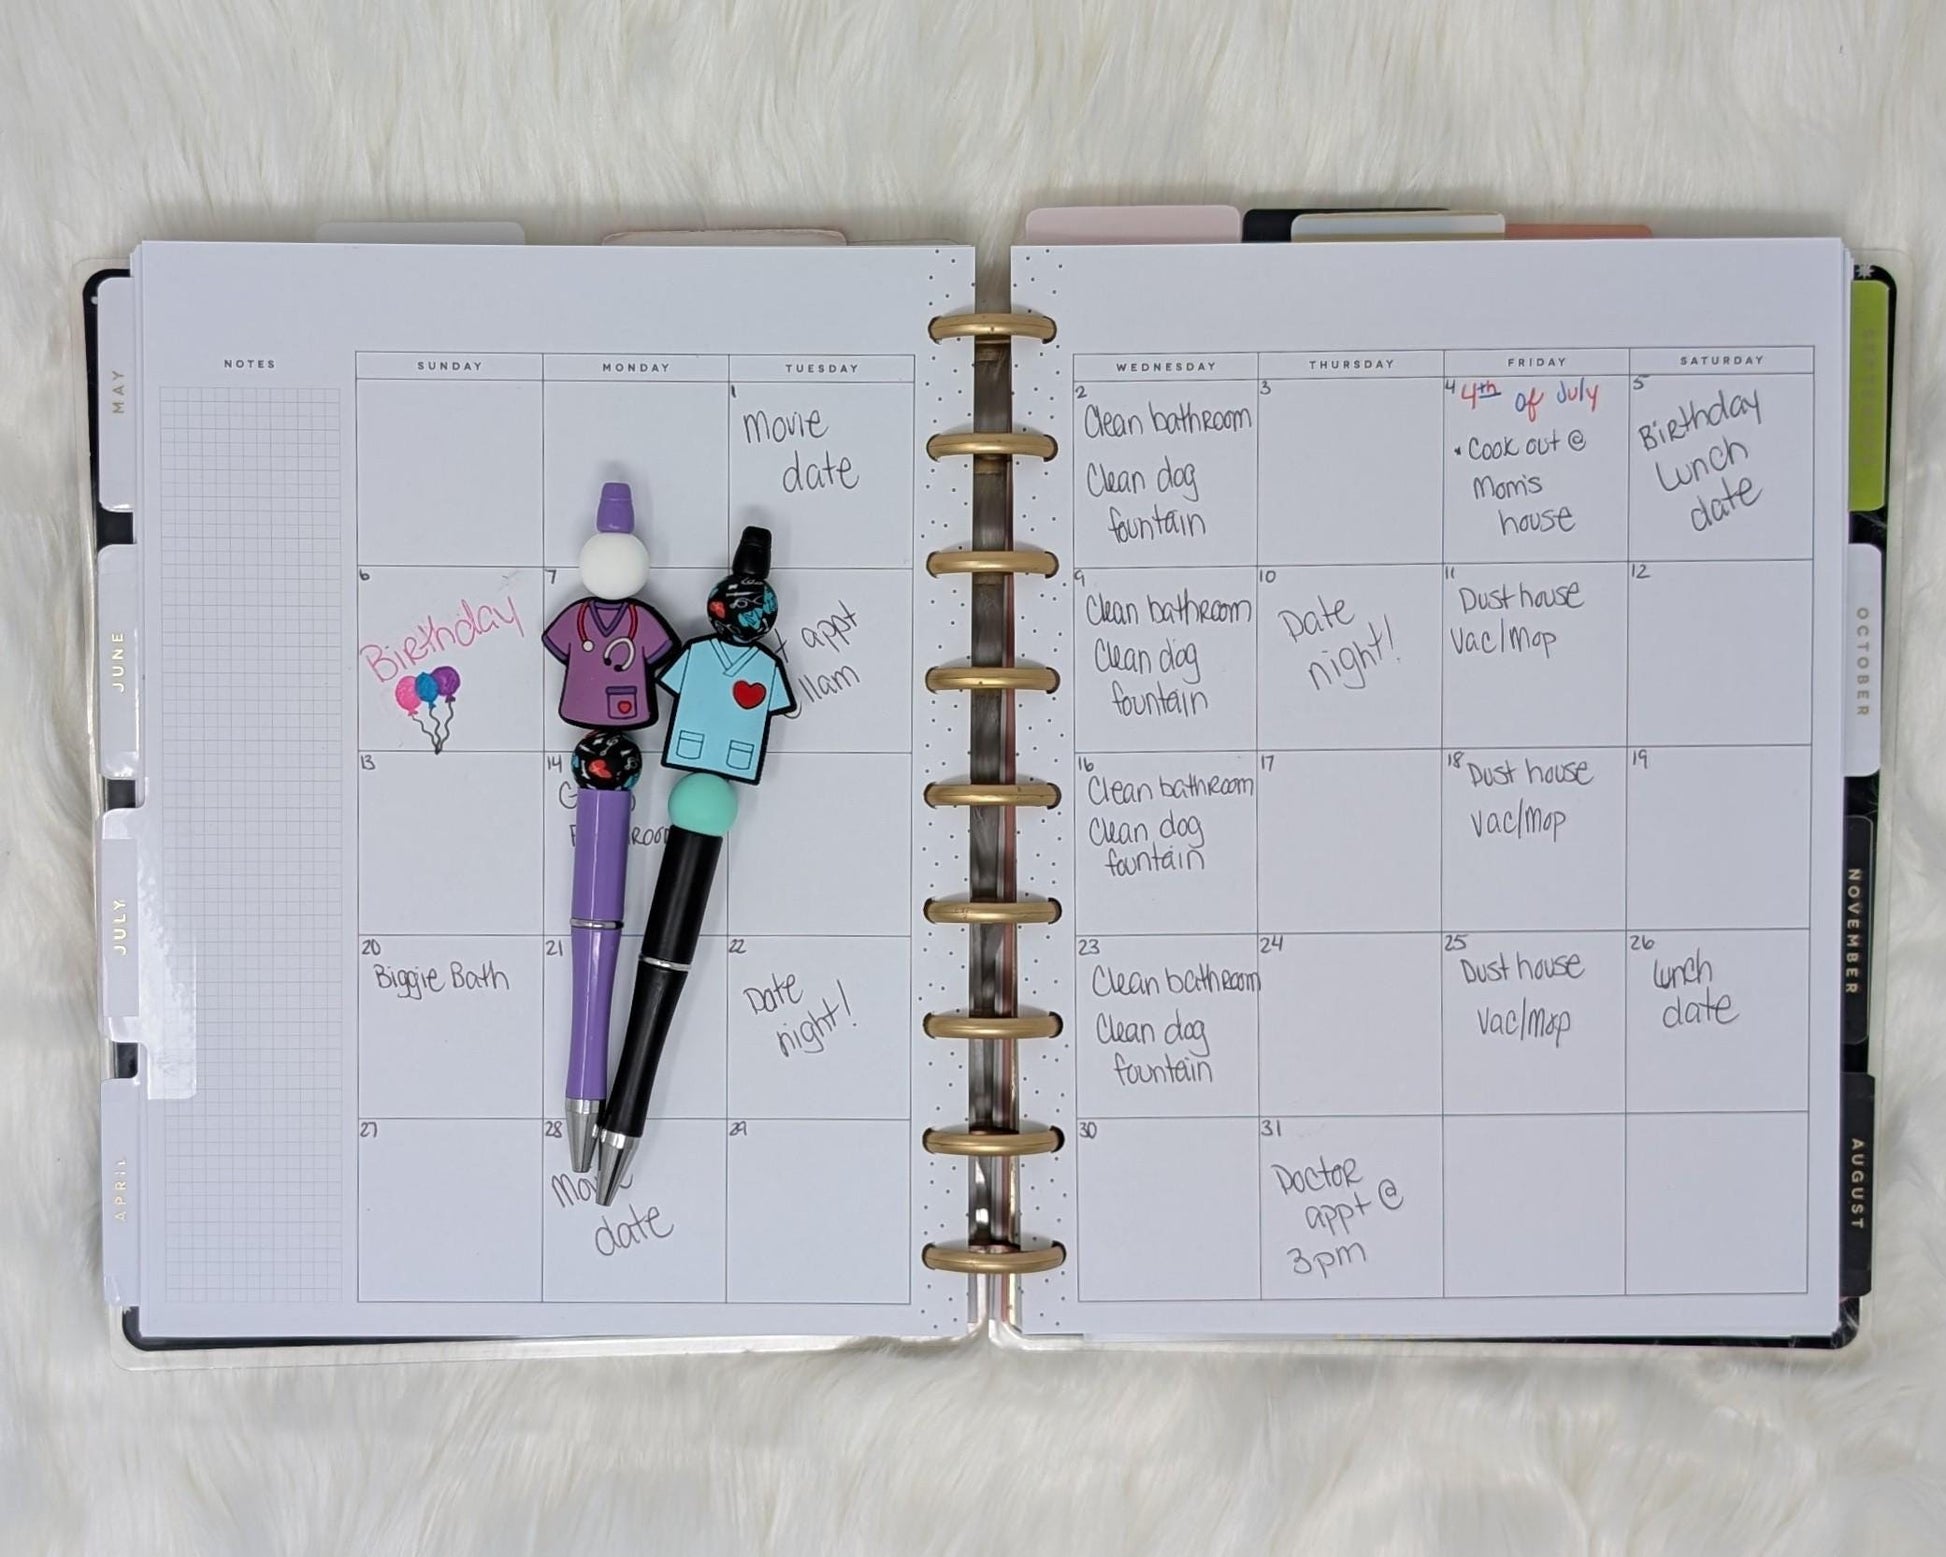 NOTES
SUNDAY
MONDAY
TUESDAY
WEDNESDAY
THURSDAY
FRIDAY
SATURDAY
1
Movie
date
2
Clean bathroom
Clean dog
fountain
3
4
4th of July
• Cook out @
Mom's
house
5
Birthday
Lunch
date
6
Birthday
7
appt
11am
9
Clean bathroom
Clean dog
fountain
10
Date
night!
11
Dust house
Vac/Mop
12
13
14
16
Clean bathroom
Clean dog
fountain
17
18
Dust house
Vac/Mop
19
20
Biggie Bath
21
22
Date
night!
23
Clean bathroom
Clean dog
fountain
24
25
Dust house
Vac/Mop
26
Lunch
date
27
28
Movie
date
29
30
31
Doctor
appt @
3pm
MAY
JUNE
JULY
APRIL
OCTOBER
NOVEMBER
AUGUST